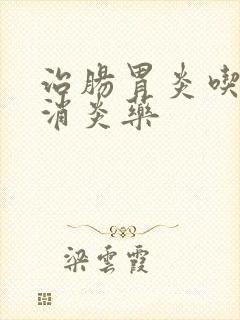 治腸胃炎喫
消炎藥
梁雲霞